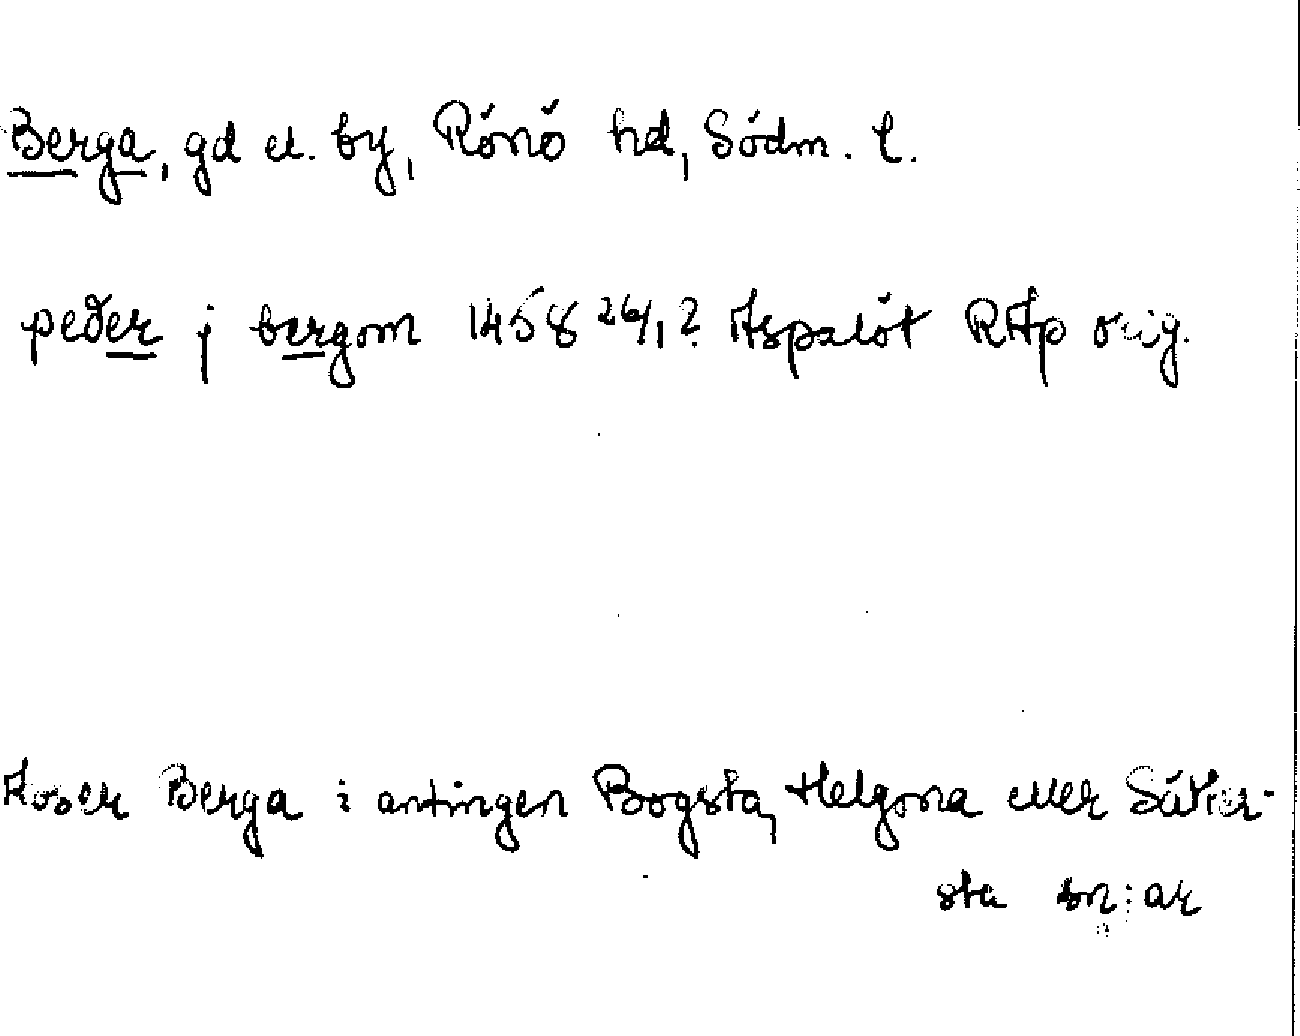 Berga, gd el. by, Rönö hd, Södm. l.
peder j bergom 1458 26/1? Aspalöt RAp orig.
Avser Berga i antingen Bogsta, Helgona eller Säter-
sta sn:ar